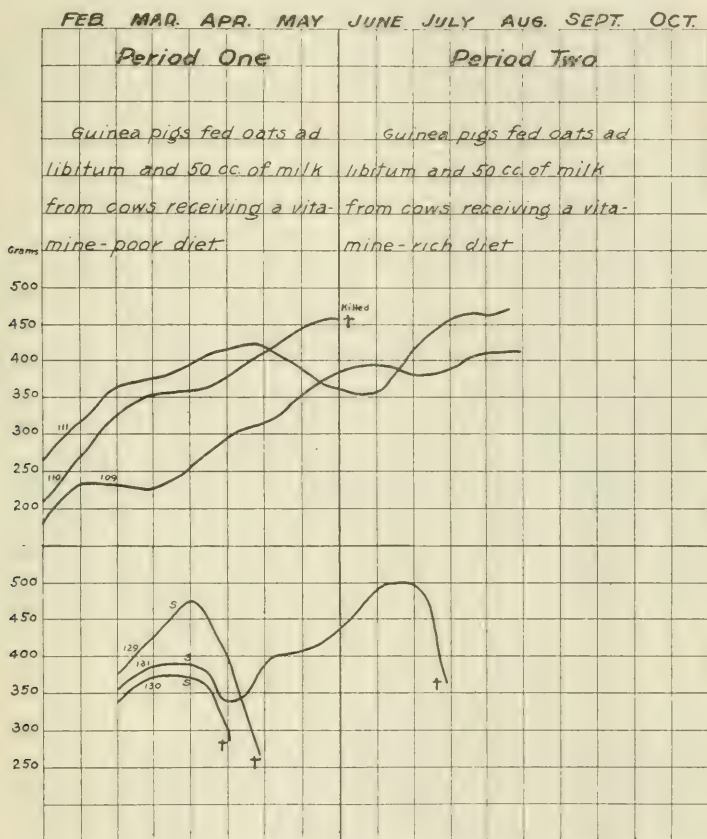 FEB. MAR. APR. MAY JUNE JULY AUG. SEPT. OCT.
Period One
Period Two
Guinea pigs fed oats ad
libitum and 50 cc. of milk
from cows receiving a vita-
mine-poor diet.
Guinea pigs fed oats ad
libitum and 50 cc. of milk
from cows receiving a vita-
mine-rich diet
Grams
500
450
400
350
300
250
200
Killed
†
111
110
109
500
450
400
350
300
250
129
131
130
S
S
S
†
†
†